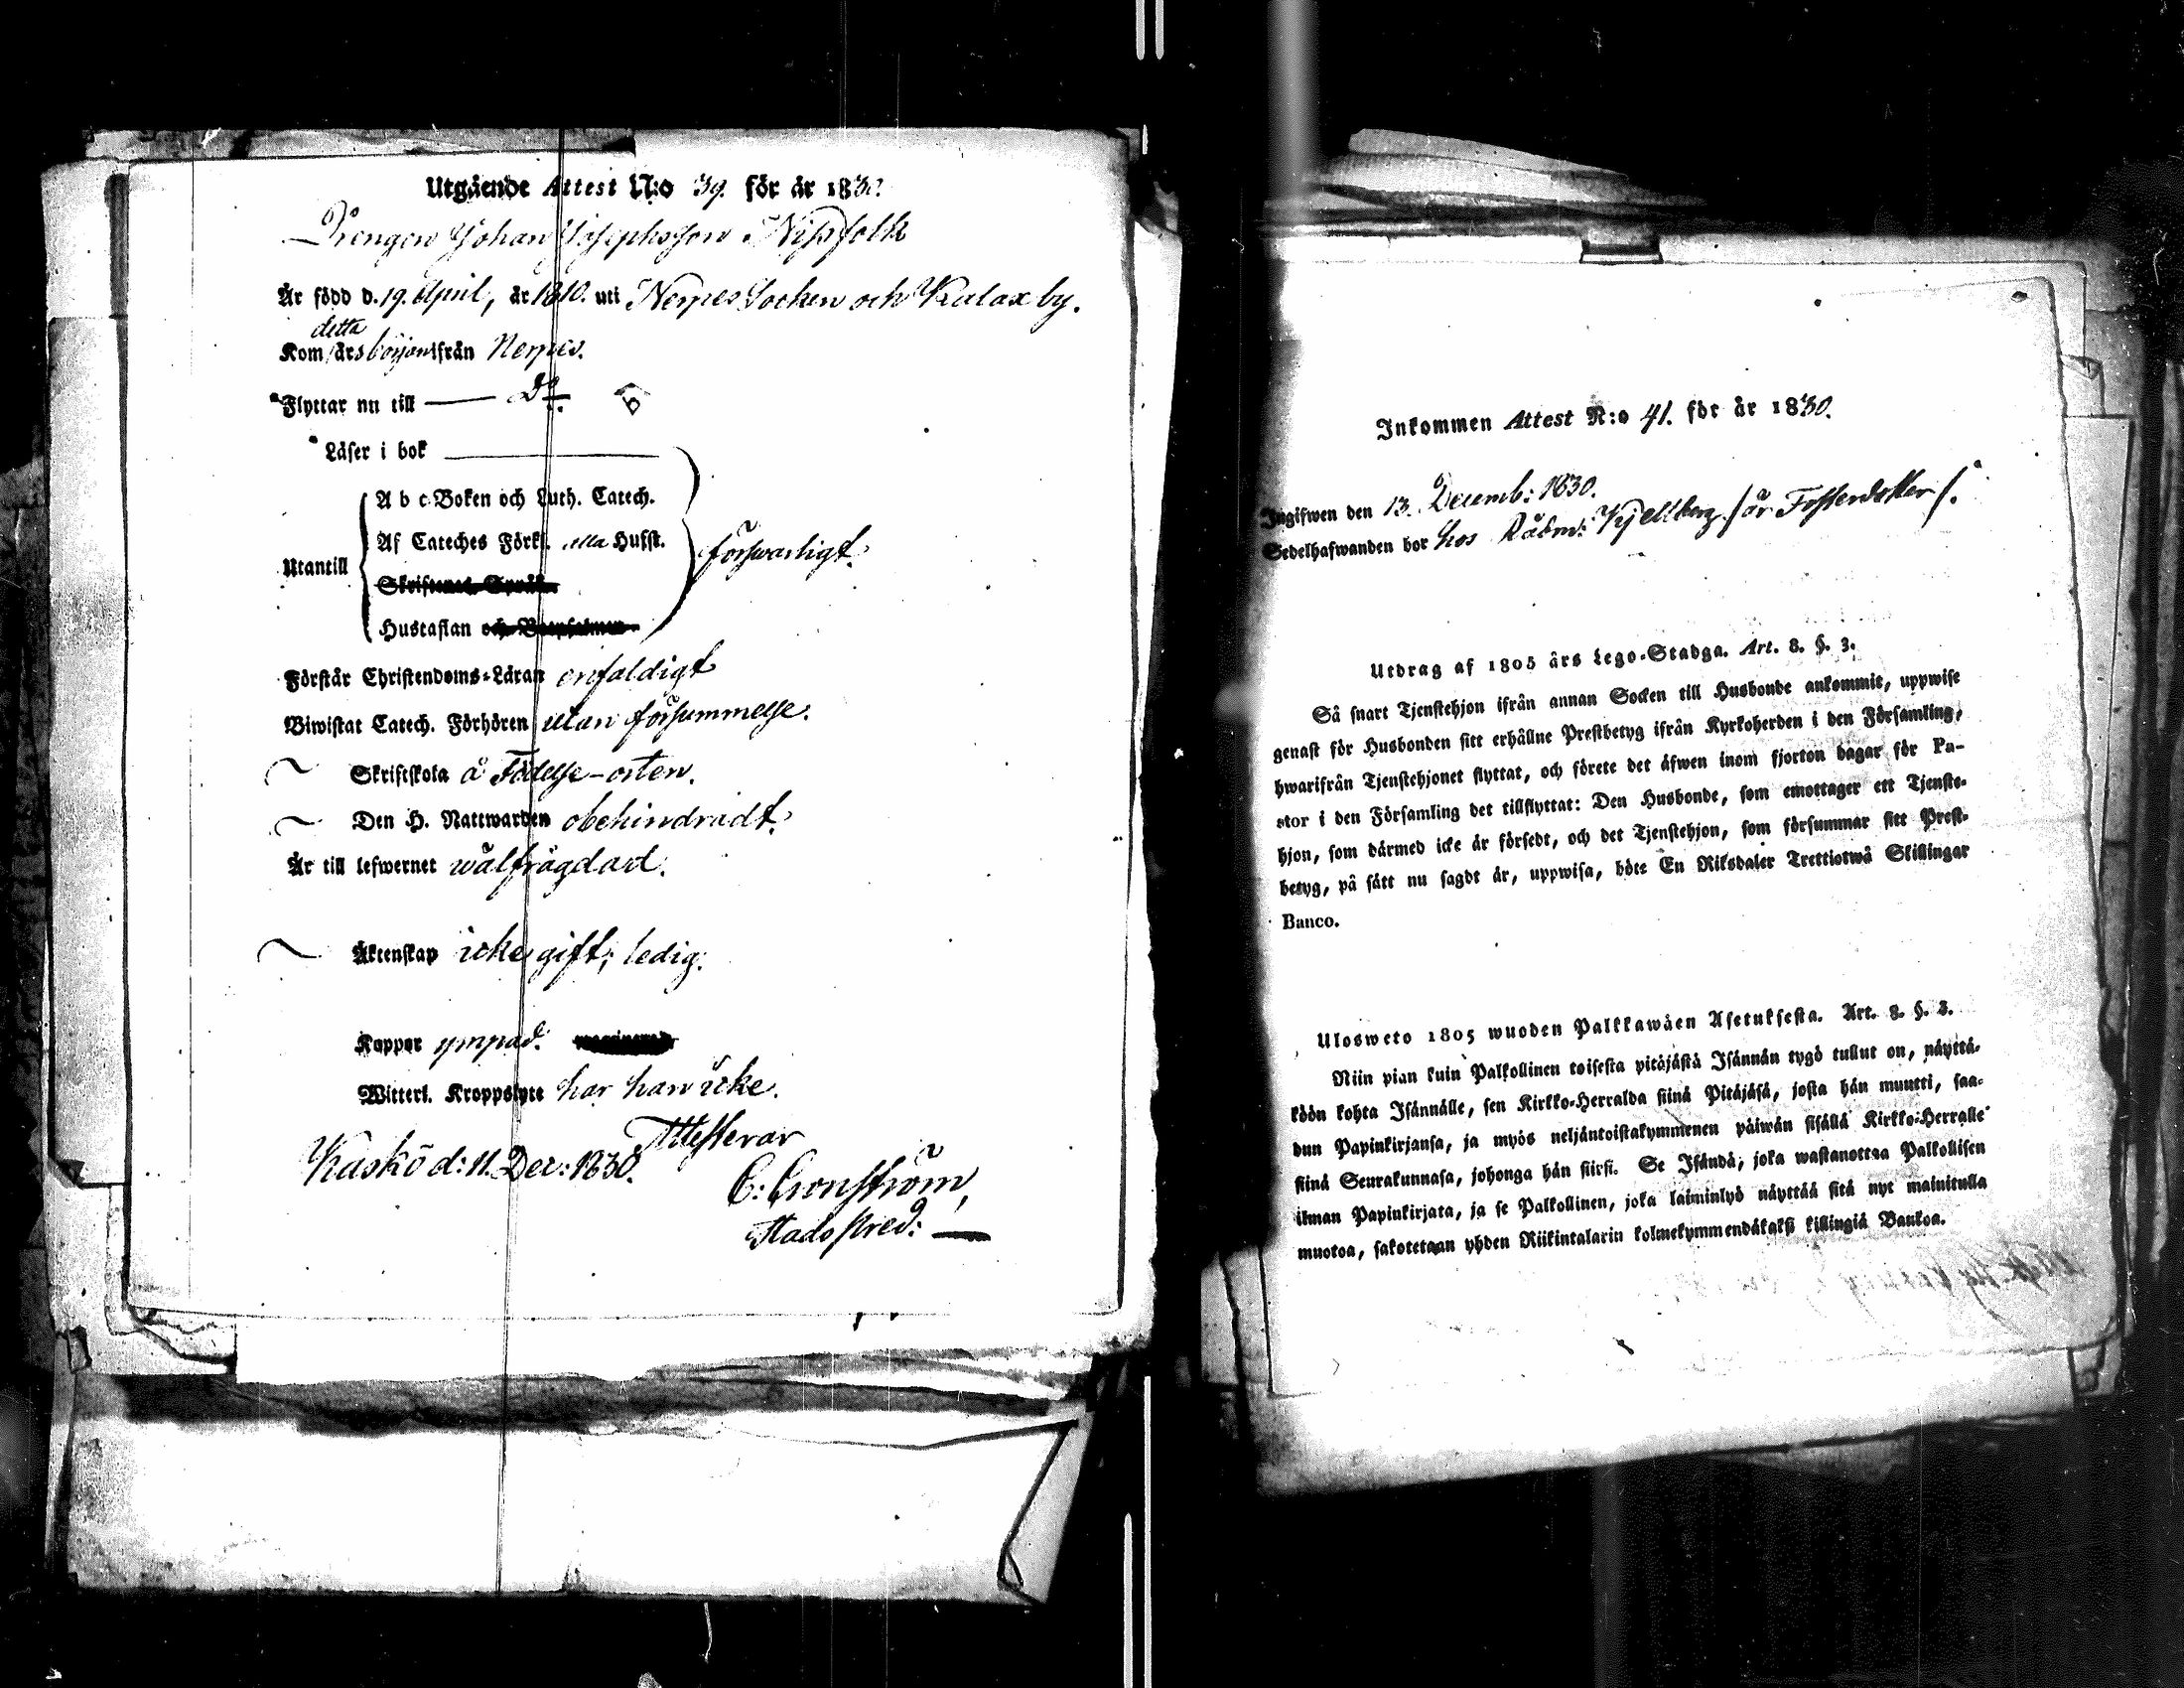 Utgående Attest N:o 39. för år 1830.
Drengen Johan Josephsson Nissfolk
Är född d. 19. April, år 1810. uti Nerpes Socken och Kalax by.
detta
Kom /års början ifrån Nerpes.
Flyttar nu till — Do
Läser i bok
A b c-Boken och Luth. Catech.
Af Cateches Förkl. Husst.
Utantill
försvarligt.
Hustaflan
Förstår Christendoms-Läran enfaldigt
Biwistat Catech. Förhören utan försummelse.
Skriftskola å Födelse-orten.
Den H. Nattwarden obehindradt.
Är till lefwernet wälfrägdad.
Äktenskap icke gift; ledig.
Koppor ympad.
Witterl. Kroppslyte har han icke.
Attesterar
Kaskö d: 11. Dec: 1830.
C: Cronström,
Stads pred:
Inkommen Attest N:o 41. för år 1830.
Ingifwen den 13. Decemb: 1830.
Sedelhafwanden bor hos Rådm: Kjellberg /är Fosterdotter/.
Utdrag af 1805 års Lego-Stadga. Art. 8. §. 3.
Så snart Tjenstehjon ifrån annan Socken till Husbonde ankommit, uppwise
genast för Husbonden sitt erhållne Prestbetyg ifrån Kyrkoherden i den Församling,
hwarifrån Tjenstehjonet flyttat, och förete det äfwen inom fjorton dagar för Pa-
stor i den Församling det tillflyttat: Den Husbonde, som emottager ett Tjenste-
hjon, som därmed icke är försedt, och det Tjenstehjon, som försummar sitt Prest-
betyg, på sätt nu sagdt är, uppwisa, böte En Riksdaler Trettiotwå Skillingar
Banco.
Ulosweto 1805 wuoden Palkkawäen Asetuksesta. Art. 8. §. 3.
Niin pian kuin Palkollinen toisesta pitäjästä Isännän tygö tullut on, näyttä-
köön kohta Isännälle, sen Kirkko-Herralda siinä Pitäjäsä, josta hän muutti, saa-
dun Papinkirjansa, ja myös neljäntoistakymmenen päiwän sisällä Kirkko-Herralle
siinä Seurakunnasa, johonga hän siirsi. Se Isändä, joka wastanottaa Palkollisen
ilman Papinkirjata, ja se Palkollinen, joka laiminlyö näyttää sitä nyt mainitulla
muotoa, sakotetaan yhden Riikintalarin kolmekymmendäkaksi killingiä Bankoa.